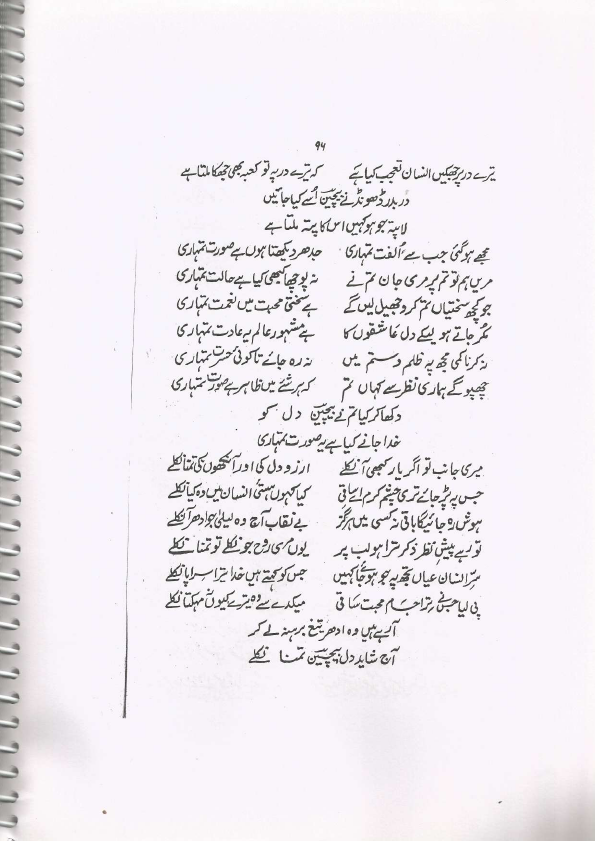 ۹۶
تیرے در پر جھکیں انسان تعجب کیا ہے کہ تیرے در پہ تو کعبہ بھی جھکا ملتا ہے
در بدر ڈھونڈنے بیچین اُسے کیا جائیں
لاپتہ جو ہو کہیں اس کا پتہ ملتا ہے
مجھے ہو گئی جب سے اُلفت تمہاری جدھر دیکھتا ہوں ہے صورت تمہاری
مریں ہم تو تم پر مری جان تم نے نہ پوچھا کبھی کیا ہے حالت تمہاری
جو کچھ سختیاں تم کرو جھیل لیں گے ہے سختی محبت میں نعمت تمہاری
مکر جاتے ہو لیکے دل عاشقوں کا ہے مشہور عالم یہ عادت تمہاری
نہ کرنا کمی مجھ پہ ظلم و ستم میں نہ رہ جائے تا کوئی حسرت تمہاری
چھپو گے ہماری نظر سے کہاں تم کہ ہر شئے میں ظاہر ہے صورت تمہاری
دکھا کر کیا تم نے بیچین دل کو
خدا جانے کیا ہے یہ صورت تمہاری
میری جانب تو اگر یار کبھی آ نکلے ارزو دل کی اور آنکھوں کی تمنا نکلے
جس پہ پڑ جائے تری چشم کرم اے ساقی کیا کہوں ہستئ انسان میں وہ کیا نکلے
ہوش رہ جائیگا باقی نہ کسی میں ہرگز بے نقاب آج وہ لیلیٰ جو ادھر آ نکلے
تو رہے پیش نظر ذکر ترا ہو لب پر یوں مری روح جو نکلے تو تمنا نکلے
سرِ انسان عیاں تجھ پہ جو ہو جا کہیں جس کو کہتے ہیں خدا تیرا سراپا نکلے
پی لیا جسنے ترا جام محبت ساقی میکدے سے وہ تیرے کیوں مہکتا نکلے
آ رہے ہیں وہ ادھر تیغ برہنہ لے کر
آج شاید دل بیچین تمنا نکلے